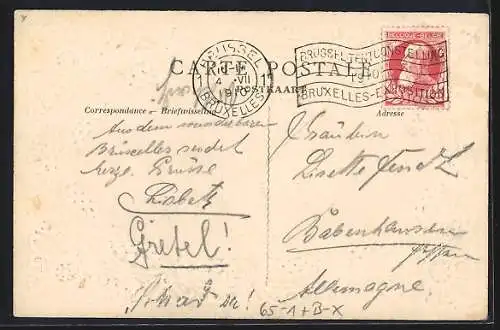 BRUSSEL
4 VII
1910
BRUXELLES
BELGIQUE-BELGIE
BRUSSEL TENTOONSTELLING
1910
BRUXELLES-EXPOSITION
CARTE POSTALE
POSTKAART
Correspondance — Briefwisseling
Adresse
Aus dem wunderbaren
Bruxelles sendet
herzl. Grüsse
Lisbeth
Gretel!
Fräulein
Lisette
Babenhausen
Hessen
Allemagne.
65-1+B-X